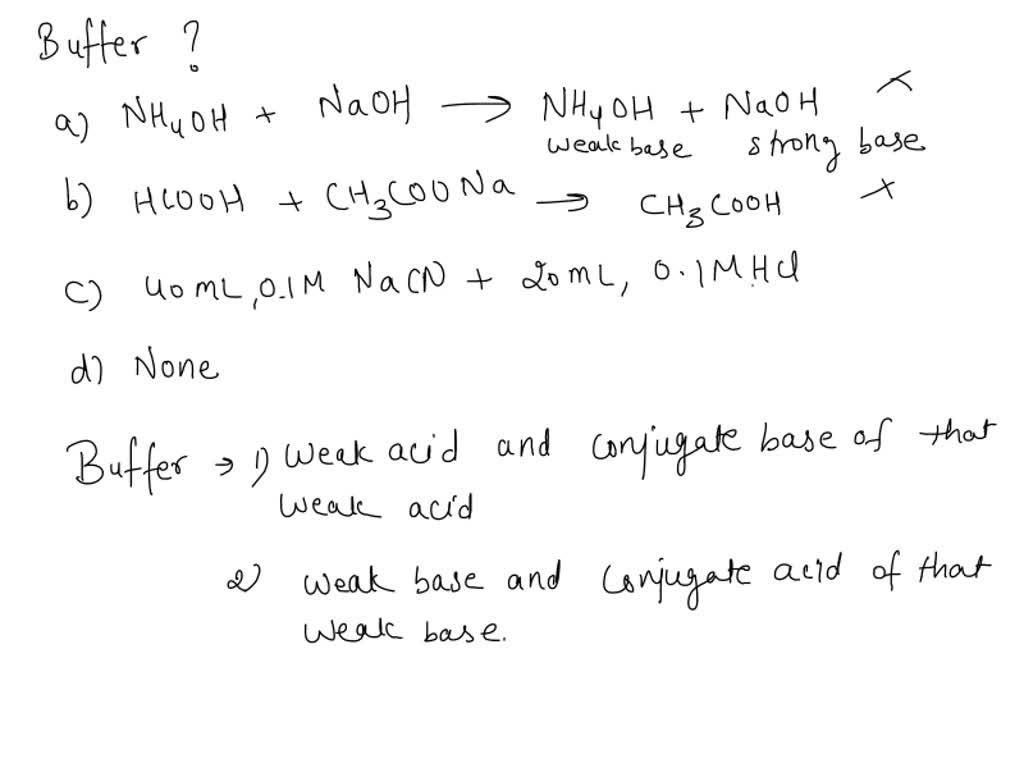 Buffer ?
a) NH4OH + NaOH → NH4OH + NaOH ×
weak base strong base
b) HCOOH + CH3COONa → CH3COOH ×
c) 40 mL, 0.1M NaCN + 20 mL, 0.1M HCl
d) None
Buffer → 1) weak acid and conjugate base of that
weak acid
2) weak base and conjugate acid of that
weak base.